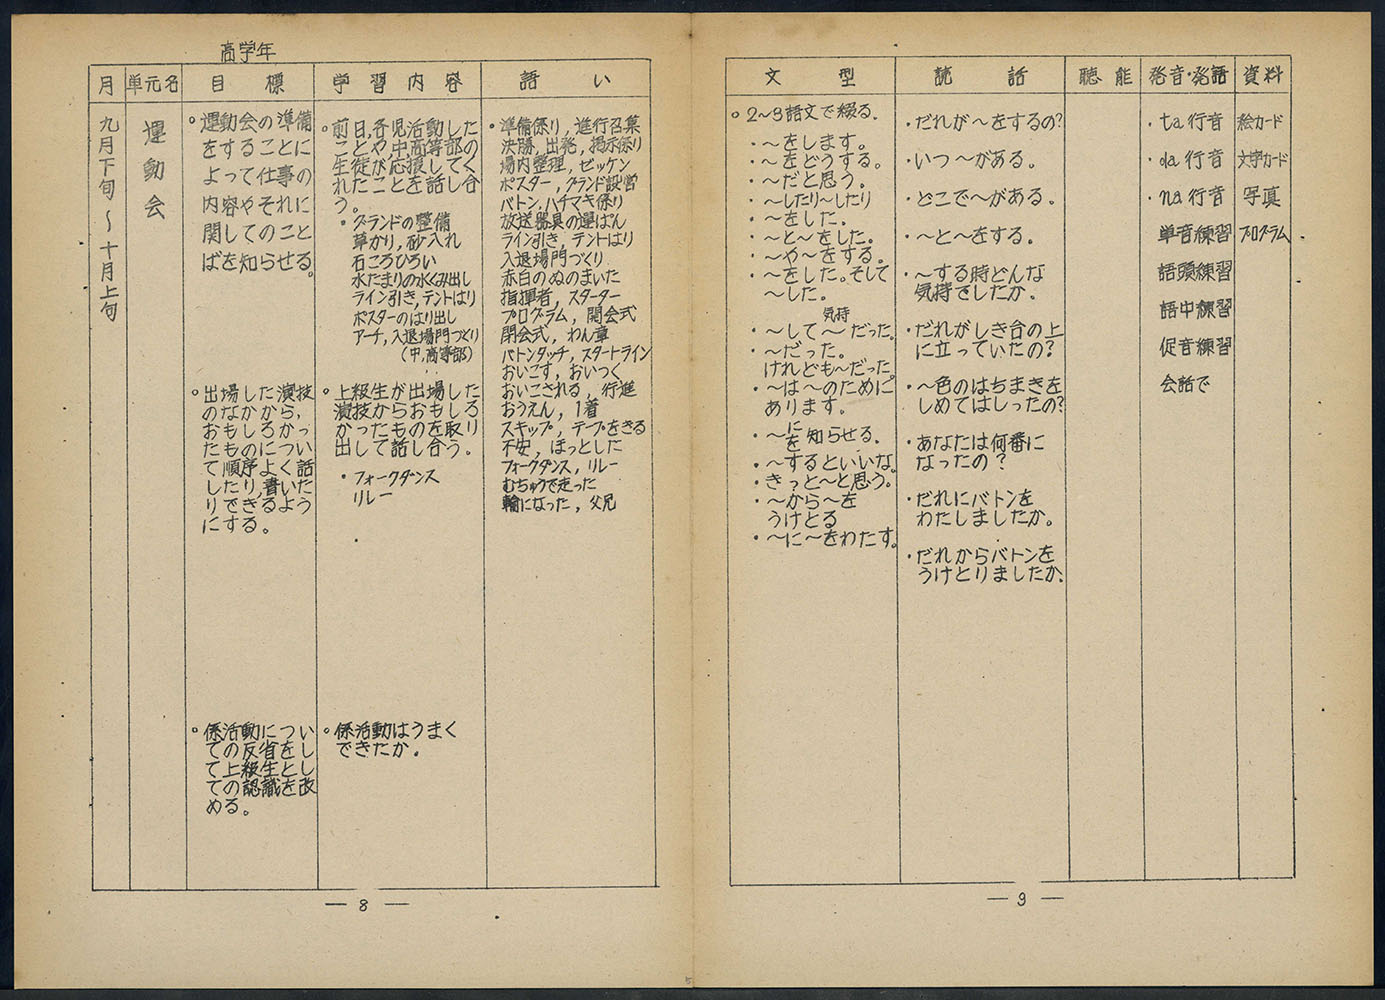 高学年
月
単元名
目標
学習内容
語い
九月下旬～十月上旬
運動会
。運動会の準備
をすることに
よって仕事の
内容やそれに
関してのこと
ばを知らせる。
。出場した演技
のなかから,
おもしろかっ
たものについ
て順序よく話
したり,書いた
りできるよう
にする。
。係活動につい
ての反省をし
て上級生とし
ての認識を改
める。
。前日,各児活動した
ことや,中高等部の
生徒が応援してく
れたことを話し合
う。
・グランドの整備
草かり,砂入れ
石ころひろい
水たまりの水くみ出し
ライン引き,テントはり
ポスターのはり出し
アーチ,入退場門づくり
(中,高等部)
。上級生が出場した
演技からおもしろ
かったものを取り
出して話し合う。
・フォークダンス
リレー
。係活動はうまく
できたか。
・準備係り,進行召集
決勝,出発,掲示係り
場内整理,ゼッケン
ポスター,グランド設営
バトン,ハチマキ係り
放送器具の運ぱん
ライン引き,テントはり
入退場門づくり
赤白のぬのまいた
指揮者,スターター
プログラム,開会式
閉会式,わん章
バトンタッチ,スタートライン
おいこす,おいつく
おいこされる,行進
おうえん,1着
スキップ,テープをきる
不安,ほっとした
フォークダンス,リレー
むちゅうで走った
輪になった,父兄
― 8 ―
文型
読話
聴能
発音・発話
資料
。2～3語文で綴る.
・～をします。
・～をどうする。
・～だと思う。
・～したり～したり
・～をした。
・～と～をした。
・～や～をする。
・～をした。そして
～した。
気持
・～して～だった。
・～だった。
けれども～だった。
・～は～のために
あります。
・～に
を知らせる.
・～するといいな。
・きっと～と思う。
・～から～を
うけとる
・～に～をわたす。
・だれが～をするの?
・いつ～がある。
・どこで～がある.
・～と～をする。
・～する時どんな
気持でしたか.
・だれがしき台の上
に立っていたの?
・～色のはちまきを
しめてはしったの?
・あなたは何番に
なったの?
・だれにバトンを
わたしましたか。
・だれからバトンを
うけとりましたか.
・ta行音
・da行音
・na行音
単音練習
語頭練習
語中練習
促音練習
会話で
絵カード
文字カード
写真
プログラム
― 9 ―